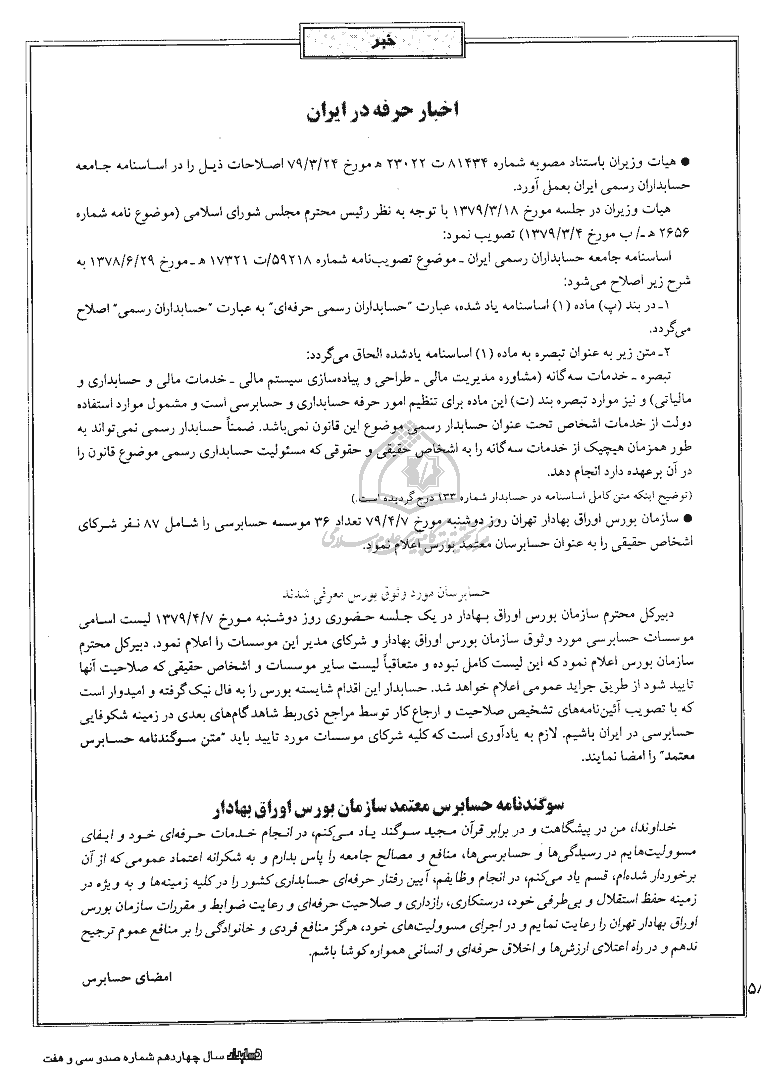 خبر
اخبار حرفه در ایران
● هیات وزیران باستناد مصوبه شماره ۸۱۴۳۴ ت ۲۳۰۲۲ ه مورخ ۷۹/۳/۲۴ اصلاحات ذیل را در اساسنامه جامعه
حسابداران رسمی ایران بعمل آورد.
هیات وزیران در جلسه مورخ ۱۳۷۹/۳/۱۸ با توجه به نظر رئیس محترم مجلس شورای اسلامی (موضوع نامه شماره
۲۶۵۶ هـ/ ب مورخ ۱۳۷۹/۳/۴) تصویب نمود:
اساسنامه جامعه حسابداران رسمی ایران ـ موضوع تصویب‌نامه شماره ۵۹۲۱۸/ت ۱۷۳۲۱ هـ ـ مورخ ۱۳۷۸/۶/۲۹ به
شرح زیر اصلاح می‌شود:
۱ـ در بند (پ) ماده (۱) اساسنامه یاد شده، عبارت "حسابداران رسمی حرفه‌ای" به عبارت "حسابداران رسمی" اصلاح
می‌گردد.
۲ـ متن زیر به عنوان تبصره به ماده (۱) اساسنامه یادشده الحاق می‌گردد:
تبصره ـ خدمات سه‌گانه (مشاوره مدیریت مالی ـ طراحی و پیاده‌سازی سیستم مالی ـ خدمات مالی و حسابداری و
مالیاتی) و نیز موارد تبصره بند (ت) این ماده برای تنظیم امور حرفه حسابداری و حسابرسی است و مشمول موارد استفاده
دولت از خدمات اشخاص تحت عنوان حسابدار رسمی موضوع این قانون نمی‌باشد. ضمناً حسابدار رسمی نمی‌تواند به
طور همزمان هیچیک از خدمات سه‌گانه را به اشخاص حقیقی و حقوقی که مسئولیت حسابداری رسمی موضوع قانون را
در آن برعهده دارد انجام دهد.
(توضیح اینکه متن کامل اساسنامه در حسابدار شماره ۱۳۳ درج گردیده است.)
● سازمان بورس اوراق بهادار تهران روز دوشنبه مورخ ۷۹/۴/۷ تعداد ۳۶ موسسه حسابرسی را شامل ۸۷ نفر شرکای
اشخاص حقیقی را به عنوان حسابرسان معتمد بورس اعلام نمود.
حسابرسان مورد وثوق بورس معرفی شدند
دبیرکل محترم سازمان بورس اوراق بهادار در یک جلسه حضوری روز دوشنبه مورخ ۱۳۷۹/۴/۷ لیست اسامی
موسسات حسابرسی مورد وثوق سازمان بورس اوراق بهادار و شرکای مدیر این موسسات را اعلام نمود. دبیرکل محترم
سازمان بورس اعلام نمود که این لیست کامل نبوده و متعاقباً لیست سایر موسسات و اشخاص حقیقی که صلاحیت آنها
تایید شود از طریق جراید عمومی اعلام خواهد شد. حسابدار این اقدام شایسته بورس را به فال نیک گرفته و امیدوار است
که با تصویب آئین‌نامه‌های تشخیص صلاحیت و ارجاع کار توسط مراجع ذی‌ربط شاهد گام‌های بعدی در زمینه شکوفایی
حسابرسی در ایران باشیم. لازم به یادآوری است که کلیه شرکای موسسات مورد تایید باید "متن سوگندنامه حسابرس
معتمد" را امضا نمایند.
سوگندنامه حسابرس معتمد سازمان بورس اوراق بهادار
خداوندا، من در پیشگاهت و در برابر قرآن مجید سوگند یاد می‌کنم، در انجام خدمات حرفه‌ای خود و ایفای
مسوولیت‌هایم در رسیدگی‌ها و حسابرسی‌ها، منافع و مصالح جامعه را پاس بدارم و به شکرانه اعتماد عمومی که از آن
برخوردار شده‌ام، قسم یاد می‌کنم، در انجام وظایفم، آیین رفتار حرفه‌ای حسابداری کشور را در کلیه زمینه‌ها و به ویژه در
زمینه حفظ استقلال و بی‌طرفی خود، درستکاری، رازداری و صلاحیت حرفه‌ای و رعایت ضوابط و مقررات سازمان بورس
اوراق بهادار تهران را رعایت نمایم و در اجرای مسوولیت‌های خود، هرگز منافع فردی و خانوادگی را بر منافع عموم ترجیح
ندهم و در راه اعتلای ارزش‌ها و اخلاق حرفه‌ای و انسانی همواره کوشا باشم.
امضای حسابرس
۵۸
حسابدار سال چهاردهم شماره صدو سی و هفت